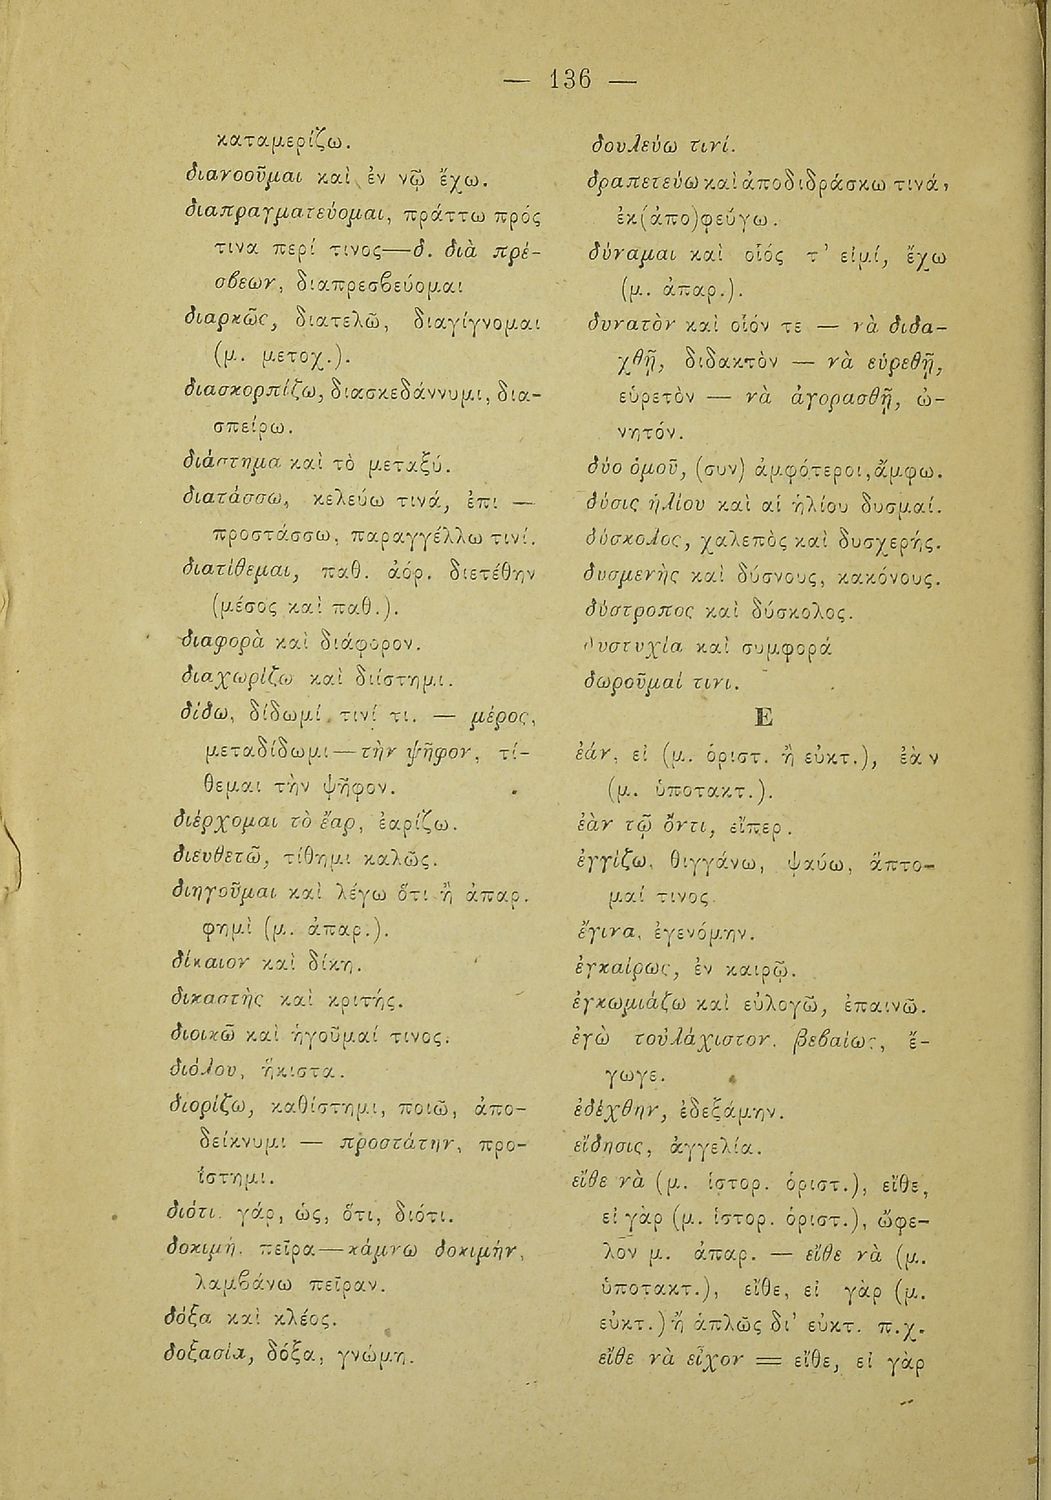 — 136 —
καταμερίζω.
διανοοῦμαι καὶ ἐν νῷ ἔχω.
διαπραγματεύομαι, πράττω πρός
τινα περί τινος—δ. διὰ πρέ-
σβεων, διαπρεσβεύομαι
διαρκῶς, διατελῶ, διαγίγνομαι
(μ. μετοχ.).
διασκορπίζω, διασκεδάννυμι, δια-
σπείρω.
διάστημα καὶ τὸ μεταξύ.
διατάσσω, κελεύω τινά, ἐπι —
προστάσσω, παραγγέλλω τινί.
διατίθεμαι, παθ. ἀόρ. διετέθην
(μέσος καὶ παθ.).
διαφορὰ καὶ διάφορον.
διαχωρίζω καὶ διίστημι.
δίδω, δίδωμί τινί τι. — μέρος,
μεταδίδωμι—τὴν ψῆφον, τί-
θεμαι τὴν ψῆφον.
διέρχομαι τὸ ἔαρ, ἐαρίζω.
διευθετῶ, τίθημι καλῶς.
διηγοῦμαι καὶ λέγω ὅτι ἢ ἀπαρ.
φημὶ (μ. ἀπαρ.).
δίκαιον καὶ δίκη.
δικαστὴς καὶ κριτής.
διοικῶ καὶ ἡγοῦμαί τινος.
διόλου, ἥκιστα.
διορίζω, καθίστημι, ποιῶ, ἀπο-
δείκνυμι — προστάτην, προ-
ΐστημι.
διότι. γάρ, ὡς, ὅτι, διότι.
δοκιμή. πεῖρα—κάμνω δοκιμήν,
λαμβάνω πεῖραν.
δόξα καὶ κλέος.
δοξασία, δόξα, γνώμη.
δουλεύω τινί.
δραπετεύω καὶ ἀποδιδράσκω τινά,
ἐκ(ἀπο)φεύγω.
δύναμαι καὶ οἷός τ' εἰμί, ἔχω
(μ. ἀπαρ.).
δυνατὸν καὶ οἷόν τε — νὰ διδα-
χθῇ, διδακτὸν — νὰ εὑρεθῇ,
εὑρετὸν — νὰ ἀγορασθῇ, ὠ-
νητόν.
δύο ὁμοῦ, (συν) ἀμφότεροι, ἄμφω.
δύσις ἡλίου καὶ αἱ ἡλίου δυσμαί.
δύσκολος, χαλεπὸς καὶ δυσχερής.
δυσμενὴς καὶ δύσνους, κακόνους.
δύστροπος καὶ δύσκολος.
δυστυχία καὶ συμφορά
δωροῦμαί τινι.
Ε
ἐάν, εἰ (μ. ὁριστ. ἢ εὐκτ.), ἐὰν
(μ. ὑποτακτ.).
ἐὰν τῷ ὄντι, εἴπερ.
ἐγγίζω, θιγγάνω, ψαύω, ἅπτο-
μαί τινος.
ἔγινα, ἐγενόμην.
ἐγκαίρως, ἐν καιρῷ.
ἐγκωμιάζω καὶ εὐλογῶ, ἐπαινῶ.
ἐγὼ τοὐλάχιστον. βεβαίως, ἔ-
γωγε.
ἐδέχθην, ἐδεξάμην.
εἴδησις, ἀγγελία.
εἴθε νὰ (μ. ἱστορ. ὁριστ.), εἴθε,
εἰ γὰρ (μ. ἱστορ. ὁριστ.), ὤφε-
λον μ. ἀπαρ. — εἴθε νὰ (μ.
ὑποτακτ.), εἴθε, εἰ γὰρ (μ.
εὐκτ.) ἢ ἁπλῶς δι' εὐκτ. π.χ.
εἴθε νὰ εἶχον = εἴθε, εἰ γὰρ